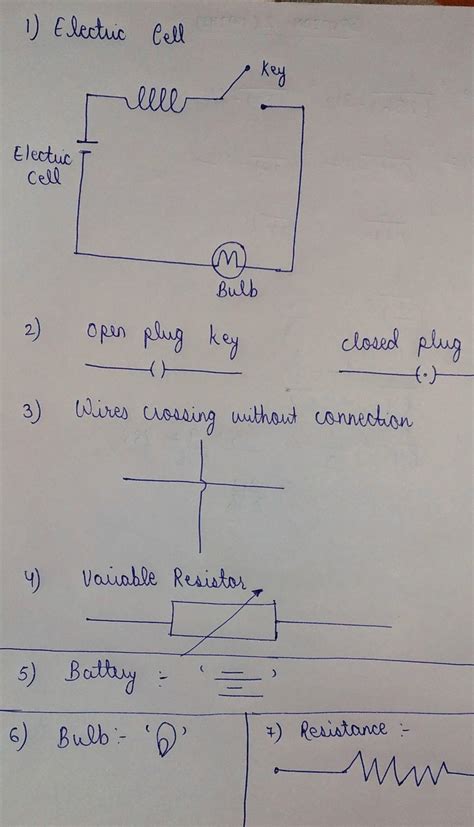 1) Electric Cell
Key
Electric
Cell
Bulb
2) open plug key
closed plug
3) Wires crossing without connection
4) Variable Resistor
5) Battery :- ' '
6) Bulb :- ' '
7) Resistance :-